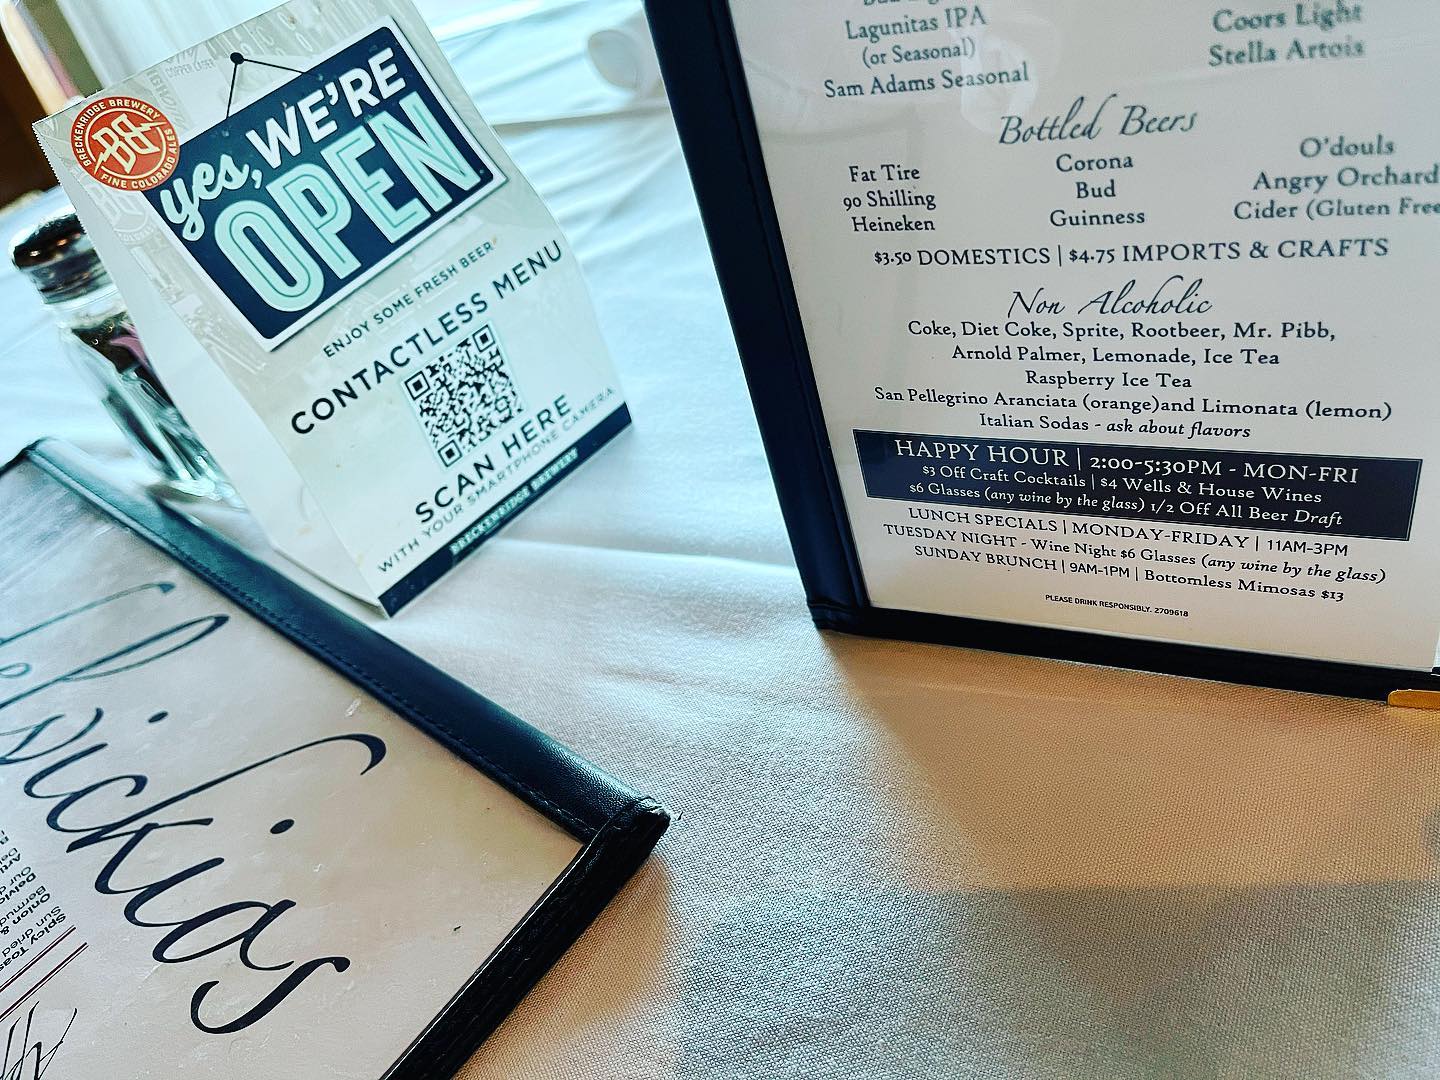 BRECKENRIDGE BREWERY
BB
FINE COLORADO ALES
yes, WE'RE
OPEN
ENJOY SOME FRESH BEER
CONTACTLESS MENU
SCAN HERE
WITH YOUR SMARTPHONE CAMERA
BRECKENRIDGE BREWERY
Lagunitas IPA
(or Seasonal)
Sam Adams Seasonal
Coors Light
Stella Artois
Bottled Beers
Fat Tire
90 Shilling
Heineken
Corona
Bud
Guinness
O'douls
Angry Orchard
Cider (Gluten Free
$3.50 DOMESTICS | $4.75 IMPORTS & CRAFTS
Non Alcoholic
Coke, Diet Coke, Sprite, Rootbeer, Mr. Pibb,
Arnold Palmer, Lemonade, Ice Tea
Raspberry Ice Tea
San Pellegrino Aranciata (orange)and Limonata (lemon)
Italian Sodas - ask about flavors
HAPPY HOUR | 2:00-5:30PM - MON-FRI
$3 Off Craft Cocktails | $4 Wells & House Wines
$6 Glasses (any wine by the glass) 1/2 Off All Beer Draft
LUNCH SPECIALS | MONDAY-FRIDAY | 11AM-3PM
TUESDAY NIGHT - Wine Night $6 Glasses (any wine by the glass)
SUNDAY BRUNCH | 9AM-1PM | Bottomless Mimosas $13
PLEASE DRINK RESPONSIBLY. 2709618
Onion &
Spicy Toas
Sun dried